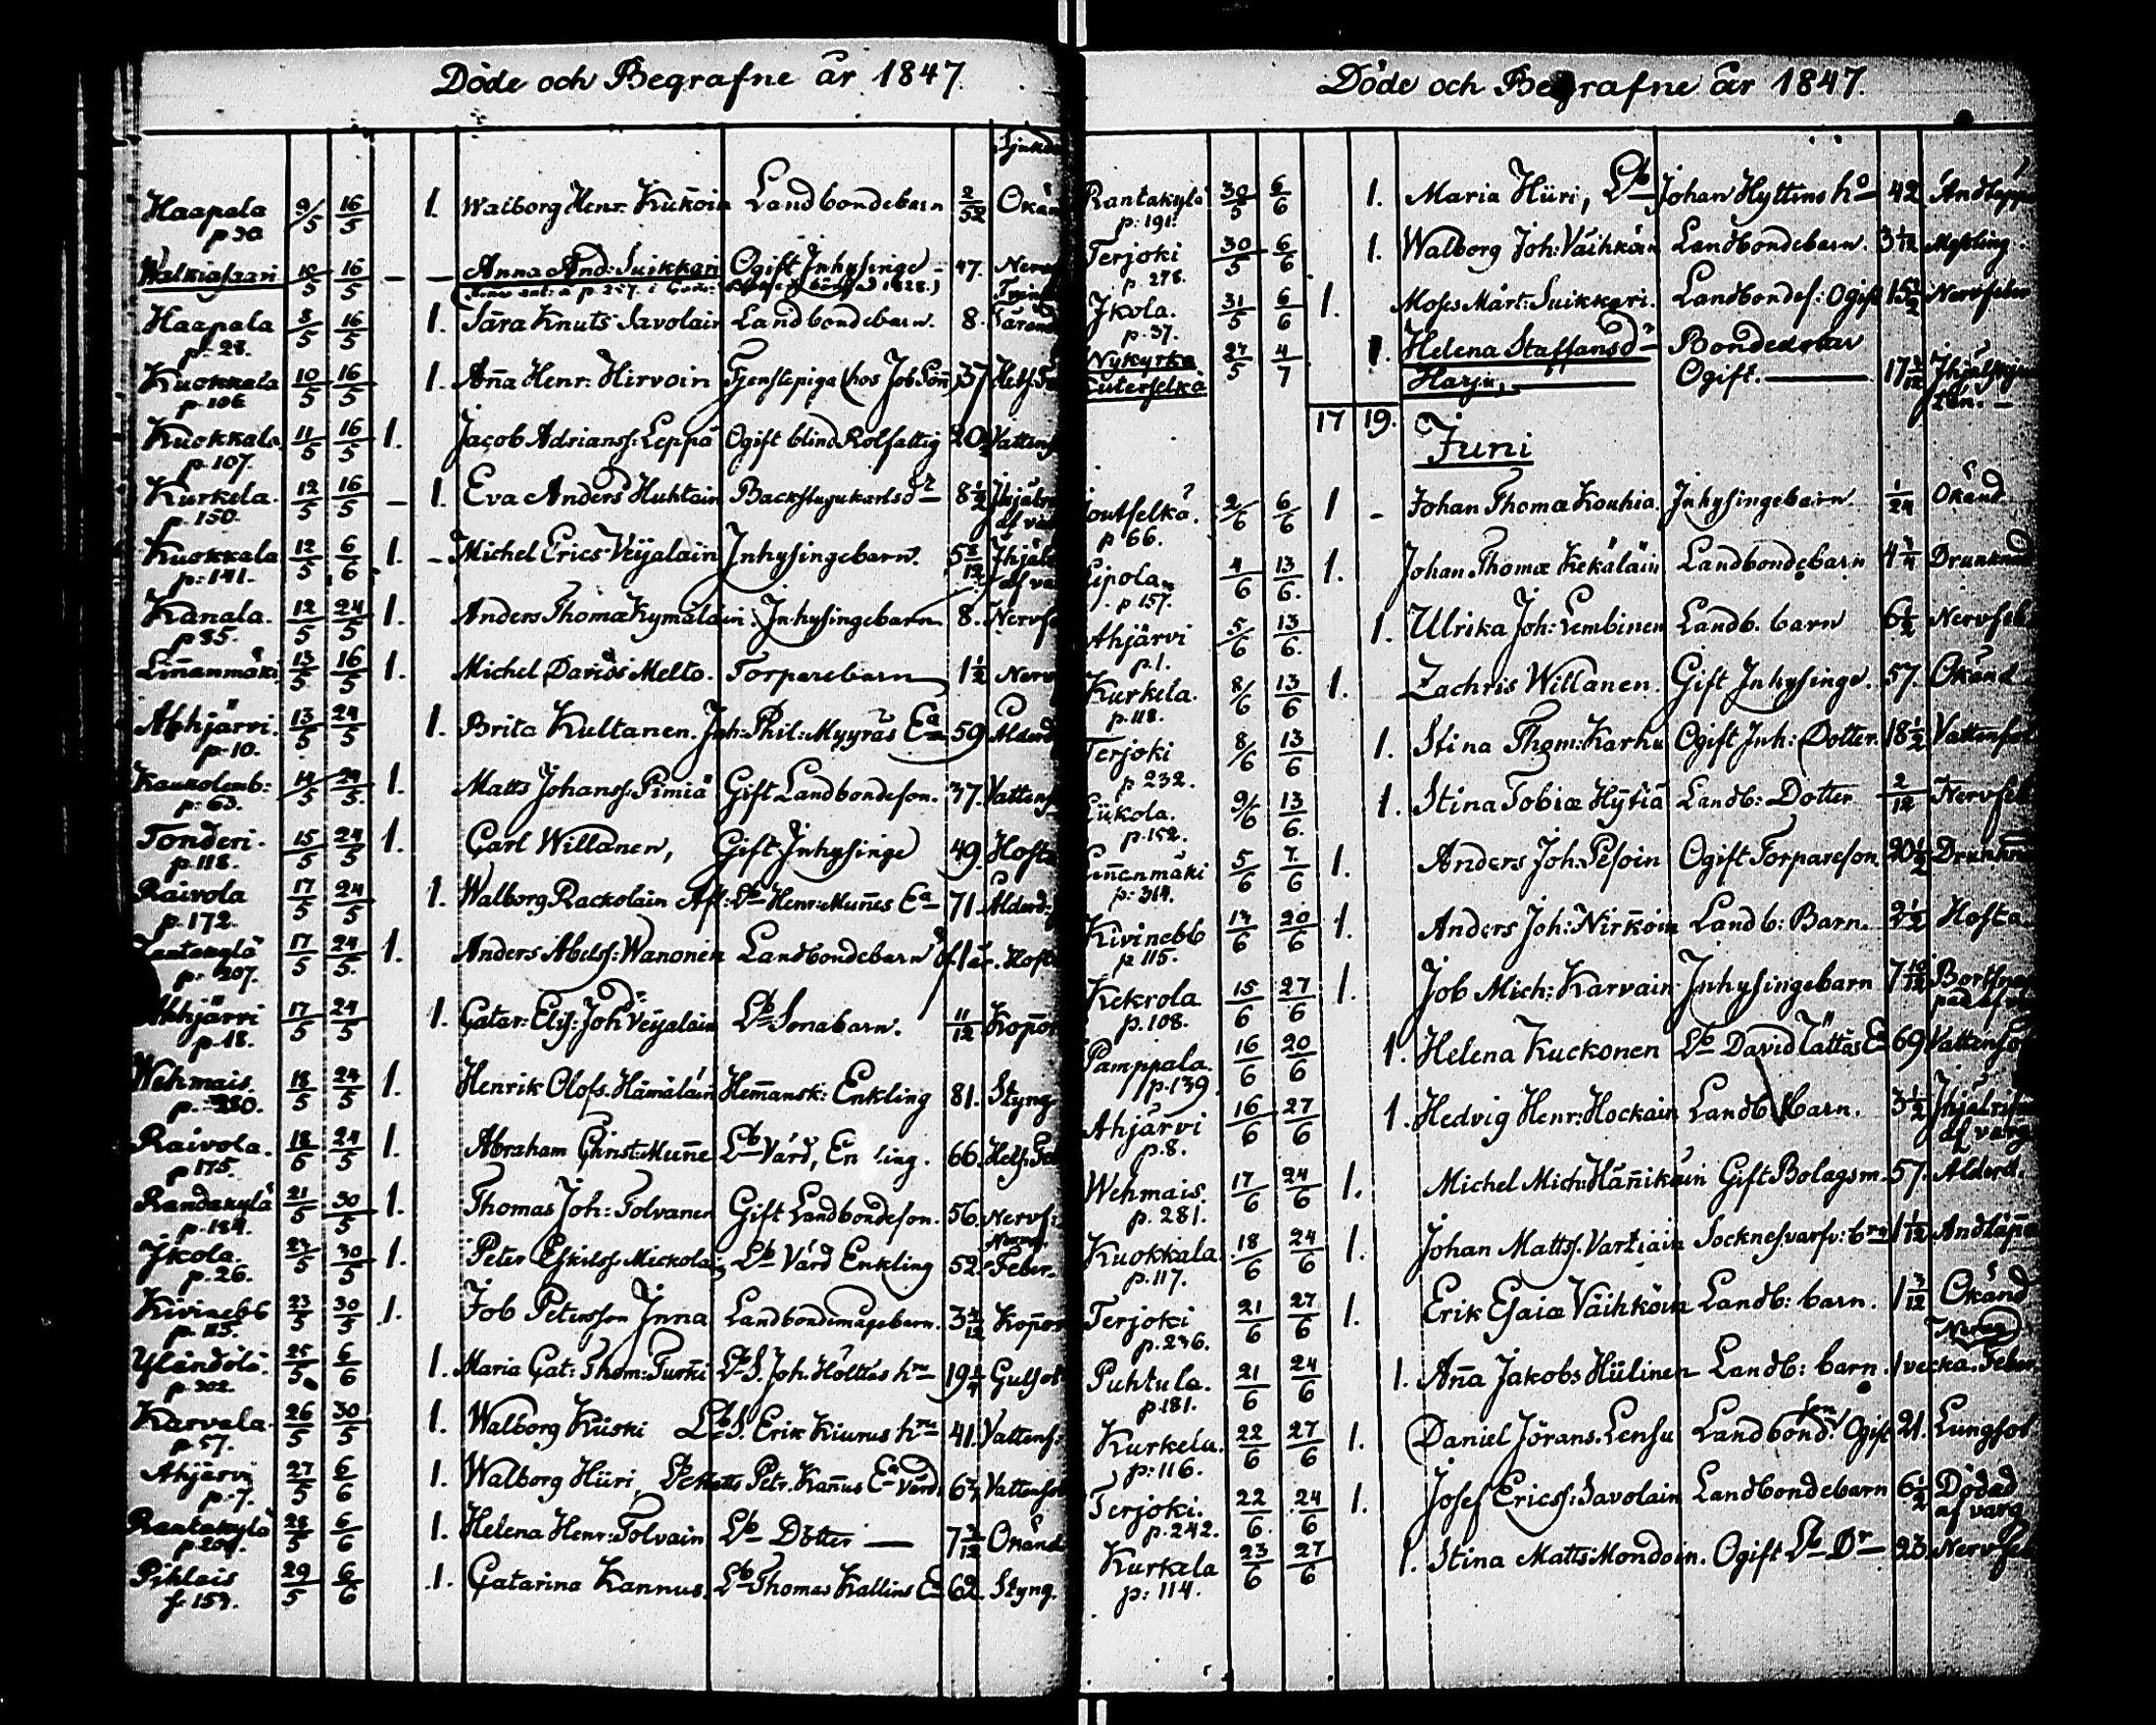 Döde och Begrafne år 1847.
Haapala 9/5 16/5 1. Walborg Henr. Kukoin Landbondebarn 2/52 Okän
Walkiasaari 10/5 16/5 — — Anna And: Suikkari Ogift Inhysinge 47. Nerv
Haapala 8/5 16/5 1. Sara Knuts Savolain Landbondebarn. 8.
p. 28.
Kuokkala 10/5 16/5 1. Aña Henr: Hirvoin Tjenstepiga (hos Job Söñ) 37
p. 106
Kuokkala 11/5 16/5 1. Jacob Adrianss: Leppä Ogift blind Rolfattig 20 Vattens
p. 107.
Kurkela. 12/5 16/5 — 1. Eva Anders Huhtain Backstugukarlsdr 8 1/2 Ihjälr
p. 150. af va
Kuokkala 12/5 6/6 1. - Michel Erics Veijalain Inhysingebarn. 5 8/12 Ihjäl
p: 141. af va
Kanala. 12/5 24/5 1. Anders Thomæ Kymäläin: Inhysingebarn 8. Nervfe
p 85.
Liñanmäki 13/5 16/5 1. Michel Davids Melto. Torparebarn 1 1/2 Nerv
Ahjärvi. 13/5 24/5 1. Brita Kultanen. Joh: Phil: Myyräs Ea 59 Alderd
p. 10.
Kaukolemb: 14/5 24/5. 1. Matts Johanss: Pimiä Gift Landbondeson. 37. Vattens
p. 63.
Tonderi. 15/5 24/5 1. Carl Willanen, Gift Inhysinge 49. Hosta
p. 118.
Raivola 17/5 24/5 1. Walborg Rackolain Afl: Lb Henr: Muñes Ea 71. Alderd:
p. 172.
17/5 24/5. 1. Anders Abelss: Wanonen Landbondebarn 1 år. Host
p. 207.
Ahjärvi 17/5 24/5 1. Catar: Elis: Joh Veijalain Lb Sonabarn. 11/12 Kopor
p. 18.
Wehmais. 18/5 24/5 1. Henrik Olofs. Hämäläin Hem̄ansk: Enkling 81. Styng
p. 280.
Raivola. 18/5 24/5 1. Abraham Christ: Muñe Lb Värd, En ling. 66.
p 175.
Randakylä 21/5 30/5 1. Thomas Joh: Tolvanen Gift Landbondeson. 56. Nervf:
p. 184.
Ikola. 23/5 30/5 1. Peter Eskilss Mickolai Lb Värd Enkling 52. Feber.
p. 26.
Kivinebb 23/5 30/5 1. Job Petersson Inna Landbondemågebarn. 3 4/12 Kopor
p. 115.
Yländölä. 25/5 6/6 1. Maria Cat: Thom: Turki Lb S. Joh. Hölttas hru 19 Gulsot
p. 302.
Karvala. 26/5 30/5 1. Walborg Kiiski Lb S. Erik Kiurus hru 41. Vattens:
p 57.
Ahjärvi 27/5 6/6 1. Walborg Hiiri, Lb Matts Petr. Kañus Ea Värd. 67 Vattensot
p. 7.
Rantakylä 28/5 6/6 1. Helena Henr: Tolvain Lb Dotter — 7 3/12 Okänd
Piklais 29/5 6/6 1. Catarina Kannus. Lb Thomas Kallins Ea 62. Styng.
Döde och Begrafne år 1847.
Rantakylä 30/5 6/6 1. Maria Hiiri, Lb Johan Hyttins ho 42 Andtäppa
p. 191.
Terjoki 30/5 6/6 1. Walborg Joh: Väihkäin Landbondebarn. 3 1/12 Messling
p. 278.
Ikola. 31/5 6/6 1. Moses Mårt: Suikkari. Landbondes: Ogift 15 1/2 Nervfeber
p. 37.
Nykyrka 27/5 4/7 1. Helena Staffansdr Bondedotter
Harju, Ogift. 17
17 19.
Juni
2/6 6/6 1 - Johan Thomæ Kouhia Inhysingebarn. 1/24 Okänd
p 66.
Lipola. 4/6 13/6. 1. Johan Thomæ Kekäläin Landbondebarn 4 3/4 Drunknad
p 157.
Ahjärvi 5/6 13/6. 1. Ulrika Joh: Lembinen Landb. barn 6 1/2 Nervfeb
p. 1.
Kurkela. 8/6 13/6 1. Zachris Willanen. Gift Inhysinge. 57. Okänd
p. 118.
Terjoki 8/6 13/6 1. Stina Thom: Karhu Ogift Inh: Dotter. 18 1/2 Vattensot
p 232.
Liikola. 9/6 13/6. 1. Stina Tobiæ Hytiä Landb: Dotter 2/12 Nervfeb
p. 152.
Liñenmäki 5/6 7/6 1. Anders Joh: Pesoin Ogift Torpareson 20 1/2 Drunkn
p. 314.
Kivinebb 14/6 20/6 1. Anders Joh: Nirkoin Landb: Barn. 2 1/2 Hosta
p 115.
Kekrola 15/6 27/6 1. Job Mich: Karvain Inhysingebarn 7 10/12 Bortsnap
p. 108. pad af
Pamppala. 16/6 20/6 1. Helena Kuckonen Lb David Tättäs Ea 69 Vattensot
p. 139
Ahjärvi 16/6 27/6 1. Hedvig Henr: Hockain Landb barn. 3 1/2 Ihjälrifven
p. 8. af varg
Wehmais. 17/6 24/6 1. Michel Mich: Häñikäin Gift Bolagsm. 57. Alderd.
p. 281.
Kuokkala. 18/6 24/6 1. Johan Mattss. Vartiain Socknesvarfv: brn 1 1/12 Andtäpa
p. 117.
Terjoki 21/6 27/6 1. Erik Esaiæ Väihköin Landb: barn. 1 3/12 Okänd
p. 236.
Puhtula. 21/6 24/6 1. Aña Jakobs Hiilinen Landb: barn. 1 vecka. Feber.
p. 181.
Kurkela. 22/6 27/6 1. Daniel Jörans. Lensu Landbond: son Ogift 21. Lungsot
p: 116.
Terjoki. 22/6. 24/6 1. Josef Ericss: Savolain Landbondebarn 6 1/2 Dödad
p. 242. af varg
Kurkala 23/6 27/6 1. Stina Matts Mondoin. Ogift Lb Dr 23. Nervfeb
p: 114.